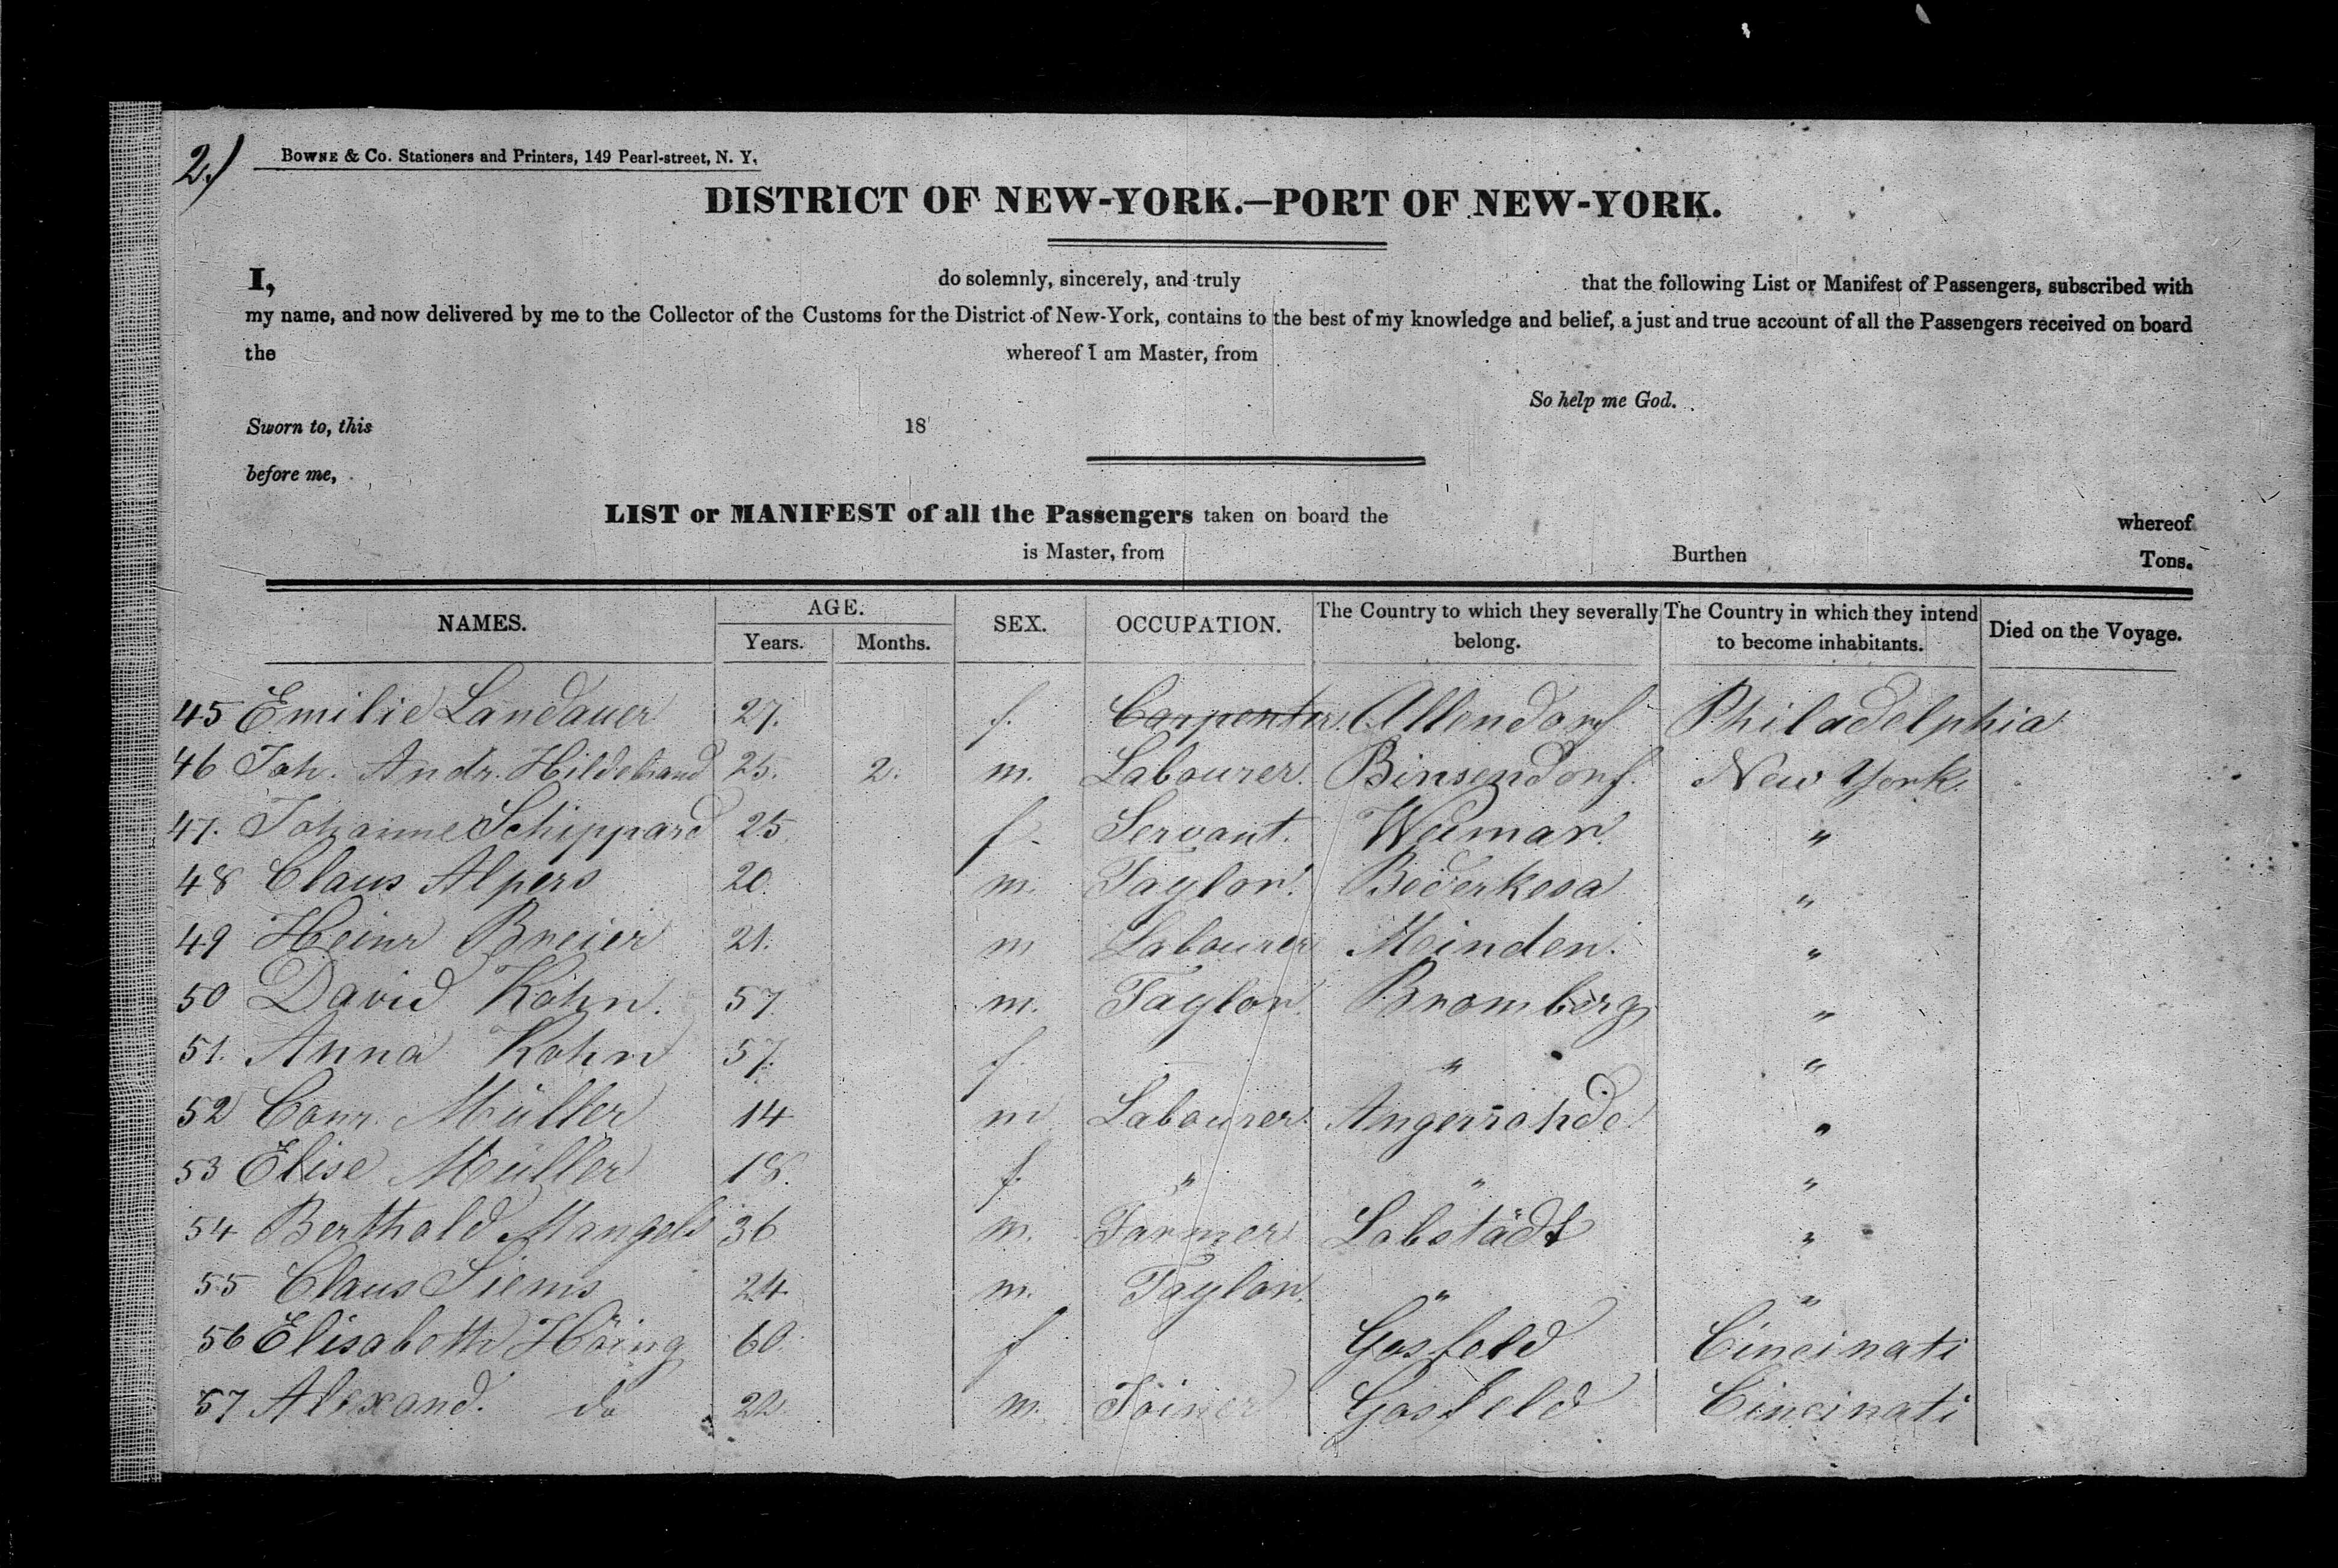 2.)
BOWNE & CO. Stationers and Printers, 149 Pearl-street, N. Y.
DISTRICT OF NEW-YORK.—PORT OF NEW-YORK.
I, do solemnly, sincerely, and truly that the following List or Manifest of Passengers, subscribed with
my name, and now delivered by me to the Collector of the Customs for the District of New-York, contains to the best of my knowledge and belief, a just and true account of all the Passengers received on board
the whereof I am Master, from
So help me God.
Sworn to, this 18
before me,
LIST or MANIFEST of all the Passengers taken on board the whereof
is Master, from Burthen Tons.
NAMES. AGE. Years. Months. SEX. OCCUPATION. The Country to which they severally belong. The Country in which they intend to become inhabitants. Died on the Voyage.
45 Emilie Landauer 27. f. Carpenter. Allendorf Philadelphia
46 Joh. Andr. Hildebrand 25. 2. m. Labourer. Binsendorf. New York.
47. Johanne Schippard 25 f. Servant. Weimar. "
48 Claus Alpers 20. m. Taylor. Bederkesa "
49 Heinr Breier 21. m Labourer Minden. "
50 David Kohn. 57 m. Taylor. Bromberg "
51. Anna Kohn 57. f. " "
52 Conr. Müller 14 m Labourer. Angerrohde "
53 Elise Müller 18. f. " " "
54 Berthold Mangels 36 m. Farmer Labstädt "
55 Claus Siems 24 m. Taylor. " "
56 Elisabeth Höing 60. f Gosfeld Cincinati
57 Alexand. do 22. m. Joiner Gosfeld Cincinati